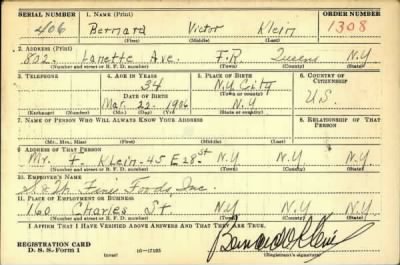 SERIAL NUMBER 1. NAME (Print) ORDER NUMBER
406 Bernard Victor Klein 1308
(First) (Middle) (Last)
2. ADDRESS (Print)
802 Lanette Ave. F.R. Queens N.Y
(Number and street or R. F. D. number) (Town) (County) (State)
3. TELEPHONE 4. AGE IN YEARS 5. PLACE OF BIRTH 6. COUNTRY OF CITIZENSHIP
34 N.Y City
DATE OF BIRTH (Town or county)
Mar. 22. 1906 N.Y U.S.
(Exchange) (Number) (Mo.) (Day) (Yr.) (State or country)
7. NAME OF PERSON WHO WILL ALWAYS KNOW YOUR ADDRESS 8. RELATIONSHIP OF THAT PERSON
(Mr., Mrs., Miss) (First) (Middle) (Last)
9. ADDRESS OF THAT PERSON
Mr. F. Klein-45 E 28 St N.Y N.Y N.Y
(Number and street or R. F. D. number) (Town) (County) (State)
10. EMPLOYER'S NAME
S & W. Fine Foods Inc.
11. PLACE OF EMPLOYMENT OR BUSINESS
160 Charles St. N.Y N.Y
(Number and street or R. F. D. number) (Town) (County) (State)
I AFFIRM THAT I HAVE VERIFIED ABOVE ANSWERS AND THAT THEY ARE TRUE.
REGISTRATION CARD
D. S. S. Form 1 (over) 16—17105 (Registrant's signature)